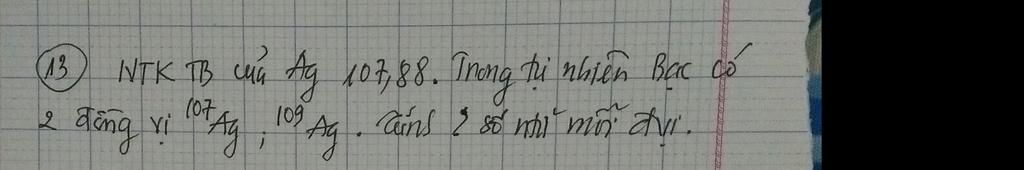 13 NTK TB của Ag 107,88. Trong tự nhiên Bạc có
2 đồng vị ¹⁰⁷Ag, ¹⁰⁹Ag. số mỗi đvị.